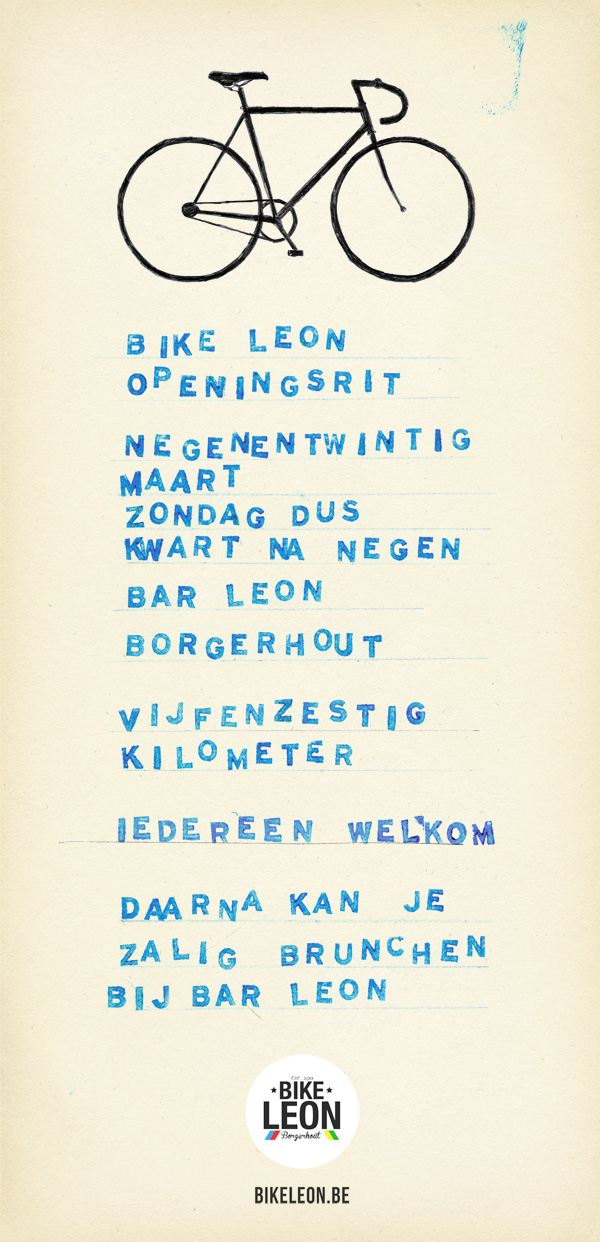 BIKE LEON
OPENINGSRIT
NEGENENTWINTIG
MAART
ZONDAG DUS
KWART NA NEGEN
BAR LEON
BORGERHOUT
VIJFENZESTIG
KILOMETER
IEDEREEN WELKOM
DAARNA KAN JE
ZALIG BRUNCHEN
BIJ BAR LEON
BIKE
LEON
Borgerhout
BIKELEON.BE